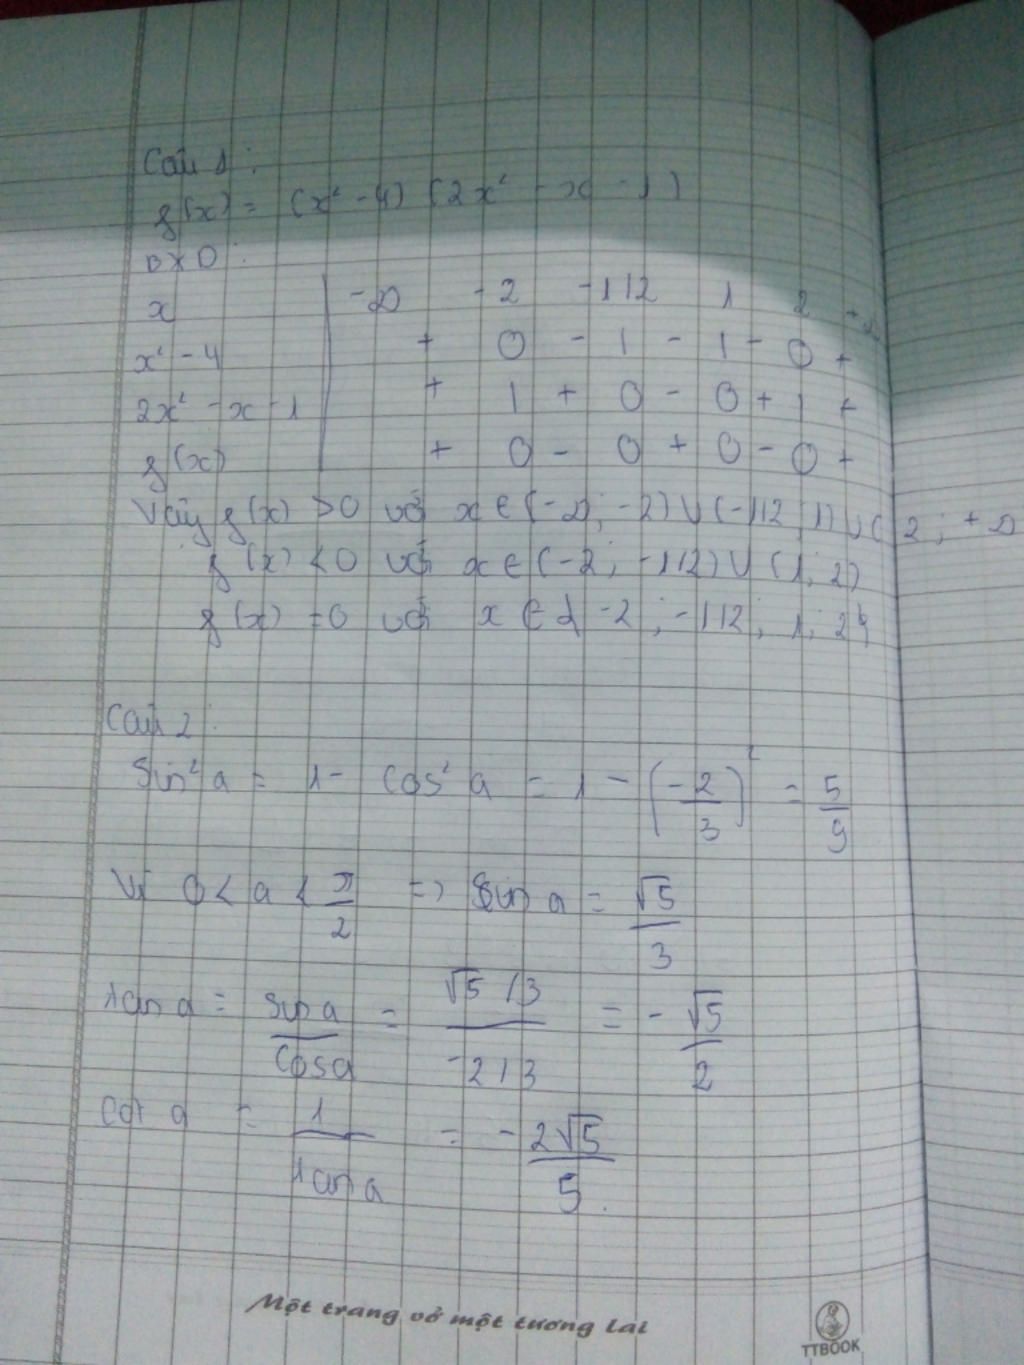 Câu 1:
f(x) = (x² - 4) (2x² - x - 1)
BXD:
x | -∞ -2 -1/2 1 2 +∞
x² - 4 | + 0 - | - | - 0 +
2x² - x - 1 | + | + 0 - 0 + | +
f(x) | + 0 - 0 + 0 - 0 +
Vậy f(x) > 0 với x ∈ (-∞; -2) ∪ (-1/2; 1) ∪ (2; +∞
f(x) < 0 với x ∈ (-2; -1/2) ∪ (1; 2)
f(x) = 0 với x ∈ { -2; -1/2; 1; 2}
Câu 2:
Sin² a = 1 - cos² a = 1 - (-2/3)² = 5/9
Vì 0 < a < π/2 => Sin a = √5/3
tan a = sin a/cos a = √5/3 / -2/3 = - √5/2
cot a = 1/tan a = - 2√5/5.
Một trang vở một tương lai
TTBOOK